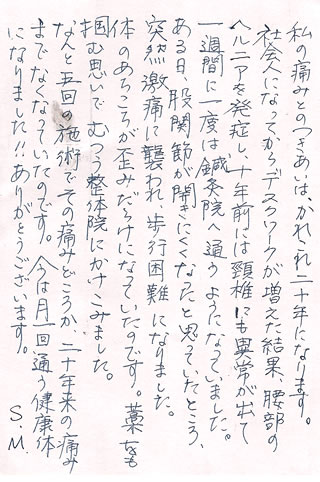 私の痛みとのつきあいは、かれこれ二十年になります。
社会人になってからデスクワークが増えた結果、腰部の
ヘルニアを発症し、十年前には頸椎にも異常が出て
一週間に一度は鍼灸院へ通うようになっていました。
ある日、股関節が開きにくくなったと思っていたところ、
突然激痛に襲われ、歩行困難になりました。
体のあちこちが歪みだらけになっていたのです。藁をも
掴む思いでむつう整体院にかけこみました。
なんと五回の施術でその痛みどころか、二十年来の痛み
までなくなっていたのです。今は月一回通う健康体
になりました!!ありがとうございます。
S.M.